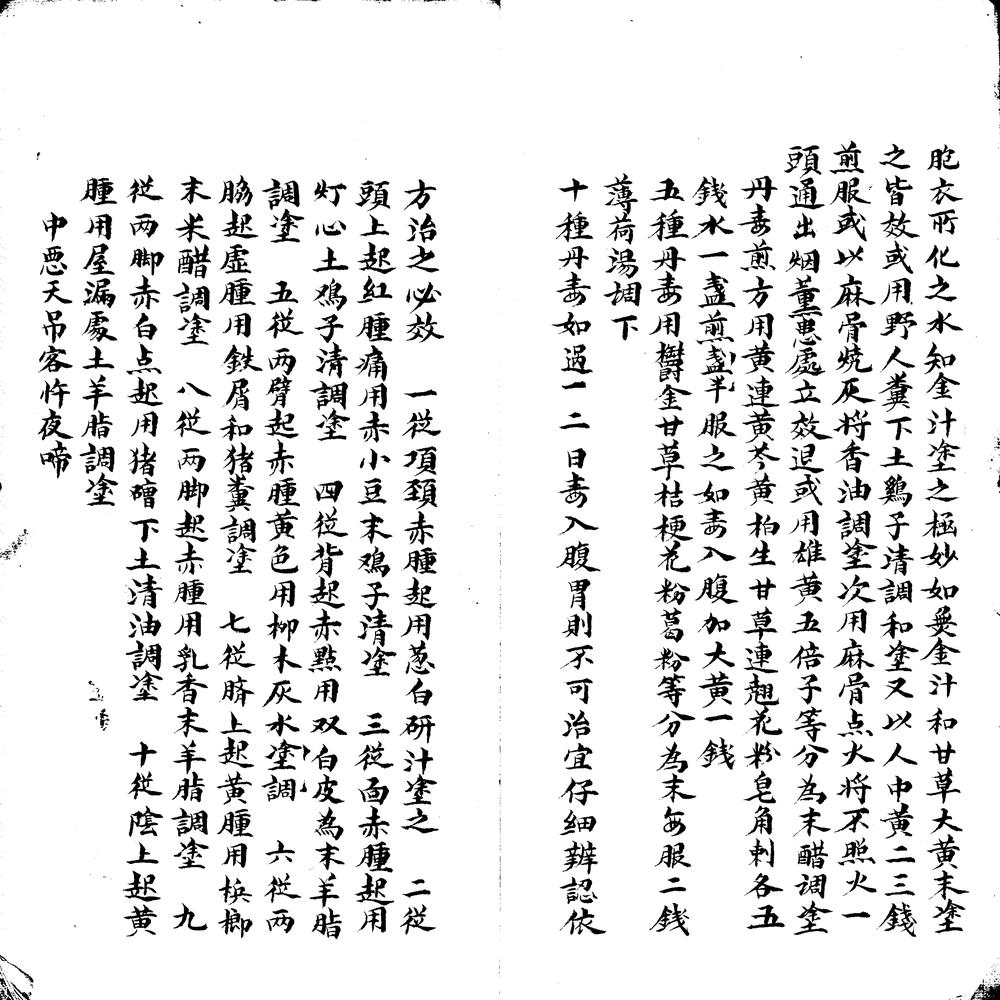 胞衣所化之水知金汁塗之極妙如無金汁和甘草大黃末塗
之皆效或用野人糞下土鷄子清調和塗又以人中黃二三錢
煎服或以麻骨燒灰将香油調塗次用麻骨点火将不照火一
頭通出烟薰患處立效退或用雄黃五倍子等分為末醋调塗
丹毒煎方用黃連黃芩黃柏生甘草連翹花粉皂角刺各五
錢水一盞煎半盞服之如毒入腹加大黃一錢
五種丹毒用欝金甘草桔梗花粉葛粉等分為末每服二錢
薄荷湯调下
十種丹毒如過一二日毒入腹胃則不可治宜仔細辨認依
方治之必效　一從項頚赤腫起用葱白研汁塗之　二從
頭上起紅腫痛用赤小豆末鸡子清塗　三從面赤腫起用
灯心土鸡子清調塗　四從背起赤點用双白皮為末羊脂
調塗　五從两臂起赤腫黃色用柳木灰水調塗　六從两
脇起虛腫用鉄屑和猪糞調塗　七從臍上起黃腫用檳榔
末米醋調塗　八從两脚起赤腫用乳香末羊脂調塗　九
從两脚赤白点起用猪下土清油調塗　十從陰上起黃
腫用屋漏處土羊脂調塗
中惡天吊客忤夜啼